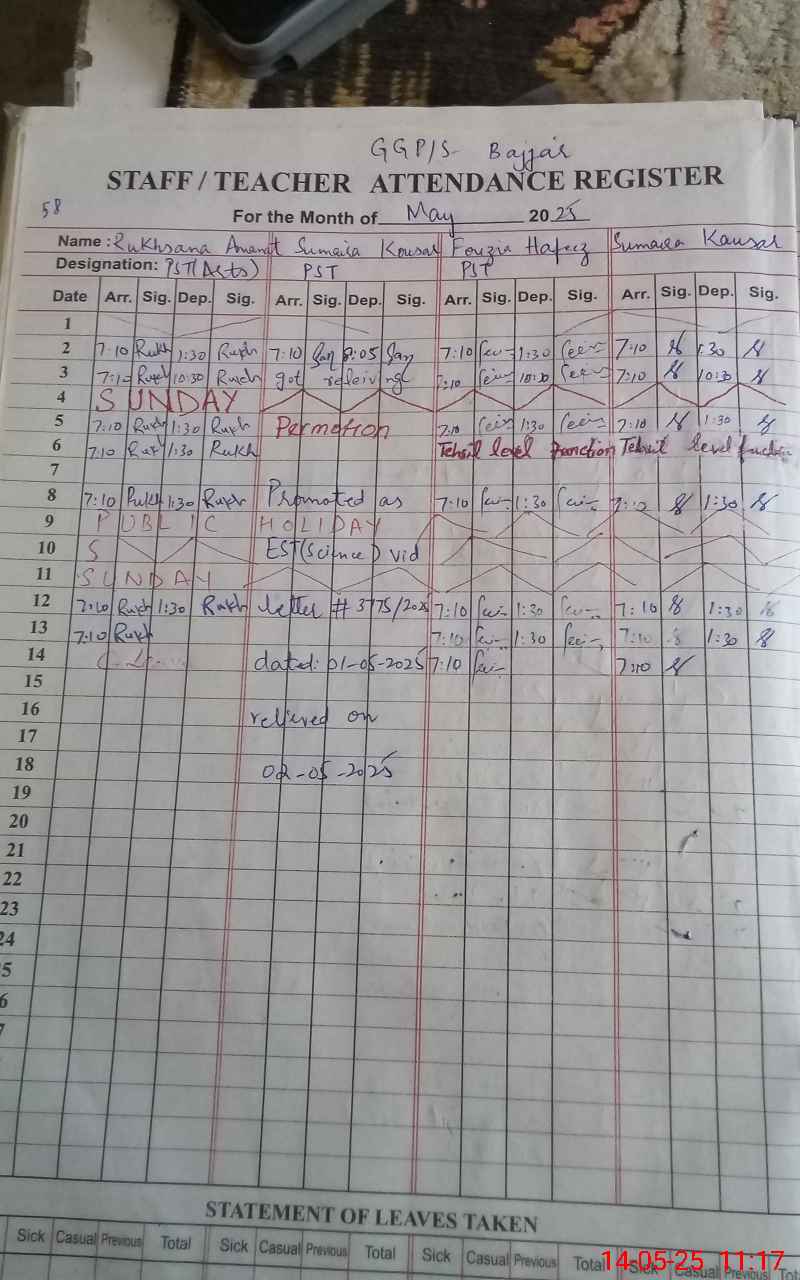 GGP/S Bajjar
STAFF / TEACHER ATTENDANCE REGISTER
58
For the Month of May 2025
Name : Rukhsana Amanat Sumaira Kousar Fouzia Hafeez Sumaira Kausar
Designation: PST (Acts) PST PST
Date Arr. Sig. Dep. Sig. Arr. Sig. Dep. Sig. Arr. Sig. Dep. Sig. Arr. Sig. Dep. Sig.
1
2 7:10 Rukh 1:30 Rukh 7:10 8:05 7:10 1:30 7:10 1:30
3 7:10 Rukh 10:30 Rukh got 7:10 10:30 7:10 10:30
4 SUNDAY
5 7:10 Rukh 1:30 Rukh Permotion 7:10 1:30 7:10 1:30
6 7:10 Rukh 1:30 Rukh Tehsil level Function Tehsil level function
7
8 7:10 Rukh 1:30 Rukh Promoted as 7:10 1:30 7:10 1:30
9 PUBLIC HOLIDAY
10 S EST(Science) vid
11 SUNDAY
12 7:10 Rukh 1:30 Rukh letter # 3775/2025 7:10 1:30 7:10 1:30
13 7:10 Rukh 7:10 1:30 7:10 1:30
14 dated: 01-05-2025 7:10 7:10
15
16 relieved on
17
18 02-05-2025
19
20
21
22
23
24
5
6
7
STATEMENT OF LEAVES TAKEN
Sick Casual Previous Total Sick Casual Previous Total Sick Casual Previous Total Sick Casual Previous Tot
14-05-25 11:17